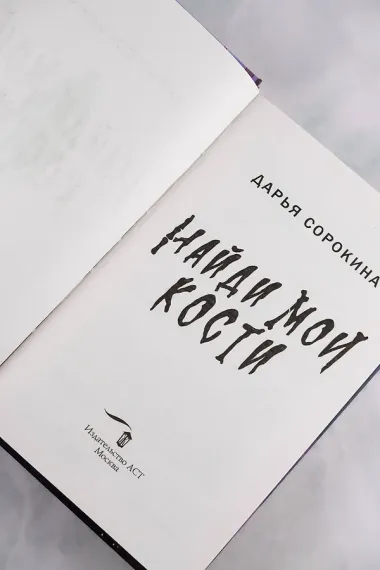 ДАРЬЯ СОРОКИНА
НАЙДИ МОИ
КОСТИ
Издательство АСТ
Москва